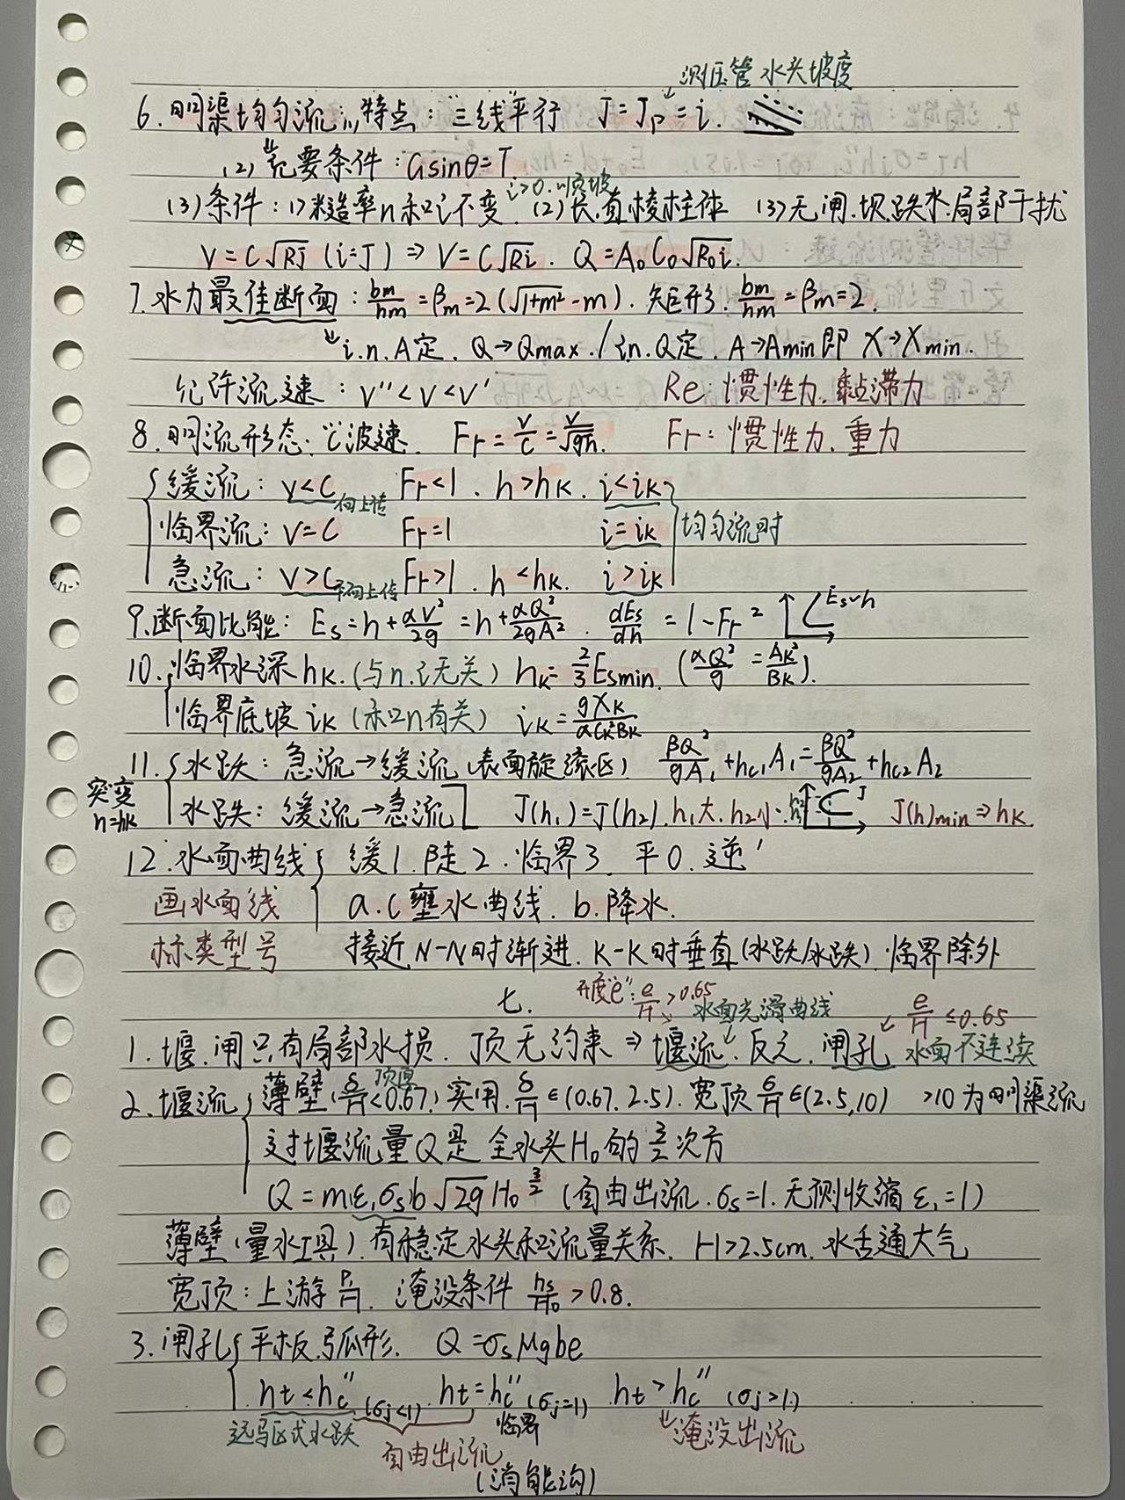 测压管水头坡度
6.明渠均匀流(1)特点:三线平行 J=Jp=i.
(2)充要条件:Gsinθ=T.
i>0.顺坡
(3)条件:(1)糙率n和i不变.(2)长直棱柱体 (3)无闸.坝.跌水.局部干扰
V=C√RJ (i=J) ⇒ V=C√Ri. Q=A₀C₀√R₀i.
7.水力最佳断面:bm/hm=βm=2(√1+m²-m).矩形 bm/hm=βm=2.
i.n.A定.Q→Qmax./i.n.Q定.A→Amin即 X→Xmin.
允许流速:V''<V<V' Re:惯性力.黏滞力
8.明流形态.C波速. Fr=V/C=V/√gh. Fr:惯性力.重力
缓流:V<C 向上传 Fr<1.h>hK.i<iK
临界流:V=C Fr=1 i=iK 均匀流时
急流:V>C 不向上传 Fr>1.h<hK.i>iK
9.断面比能:Es=h+αV²/2g=h+αQ²/2gA². dEs/dh=1-Fr² Es~h
10.临界水深hK.(与n.i无关) hK=2/3Esmin.(αQ²/g=AK³/BK).
临界底坡iK(和n有关) iK=gXK/αCK²BK
11.水跃:急流→缓流(表面旋滚区) βQ²/gA₁+hc₁A₁=βQ²/gA₂+hc₂A₂
突变
h=hK
水跌:缓流→急流 J(h₁)=J(h₂).h₁大.h₂小. J J(h)min⇒hK
12.水面曲线 缓1.陡2.临界3.平0.逆'
画水面线 a.c壅水曲线.b.降水.
标类型号 接近N-N时渐进.K-K时垂直(水跃/水跌).临界除外
七. 开度"e":e/H>0.65
水面光滑曲线 e/H≤0.65
1.堰.闸只有局部水损.顶无约束⇒堰流.反之.闸孔 水面不连续
2.堰流 薄壁(δ/H<0.67)顶厚 实用.δ/H∈(0.67.2.5).宽顶δ/H∈(2.5,10) >10为明渠流
过堰流量Q是全水头H₀的3/2次方
Q=mε₁σsb√2gH₀^3/2 (自由出流.σs=1.无侧收缩ε₁=1)
薄壁(量水工具).有稳定水头和流量关系.H>2.5cm.水舌通大气
宽顶:上游P/H.淹没条件hs/H₀>0.8.
3.闸孔 平板.弧形. Q=σsμgbe
ht<hc''(σj<1).ht=hc''(σj=1) ht>hc''(σj>1)
远驱式水跃 临界 淹没出流
自由出流
(消能沟)